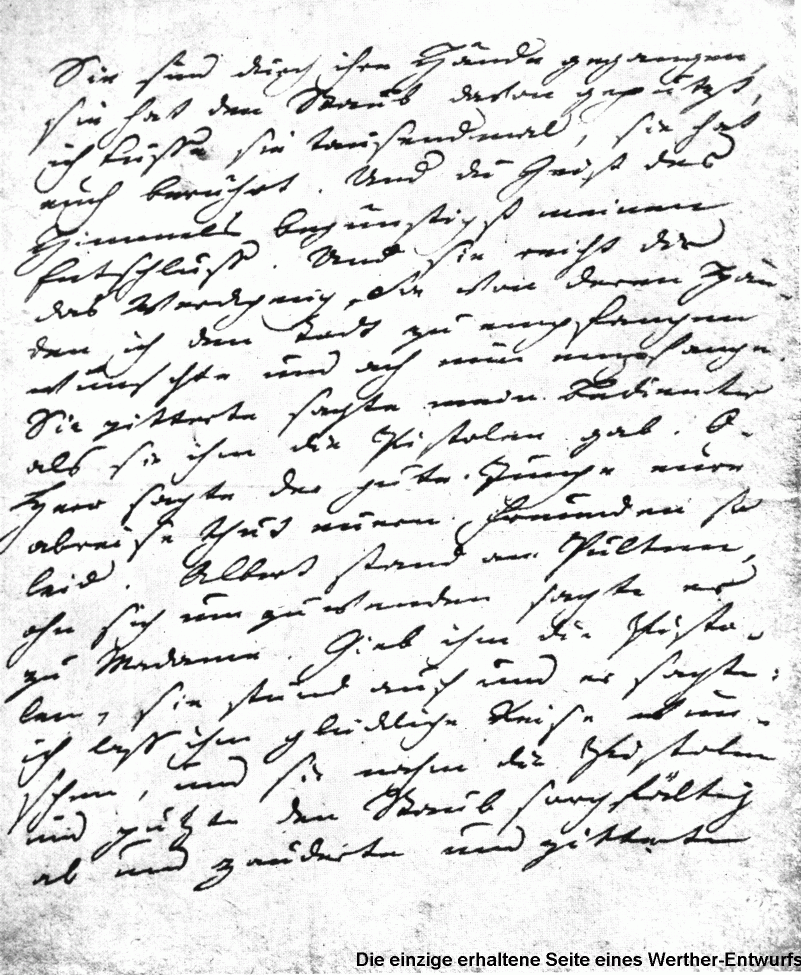 Sie sind durch ihre Hände gegangen,
sie hat den Staub davon geputzt,
ich küsse sie tausendmal, sie hat
euch berührt. Und du Geist des
Himmels begünstigst meinen
Entschluss. Und sie reicht dir
das Werckzeug, Sie von deren Hän-
den ich den Todt zu empfangen
wünschte und ach nun empfange.
Sie zitterte sagte mein Bedienter
als sie ihm die Pistolen gab. O
Herr sagte der gute Junge eure
abreise thut euren Freunden so
leid. Albert stand am Pulten,
ohn sich um zu wenden sagte er
zu Madame. Gieb ihm die Pisto-
len, sie stund auf und er sagte:
ich lass ihm glückliche Reise wün-
schen, und sie nahm die Pistolen
und putzte den Staub sorgfältig
ab und zauderte und zitterte
Die einzige erhaltene Seite eines Werther-Entwurfs